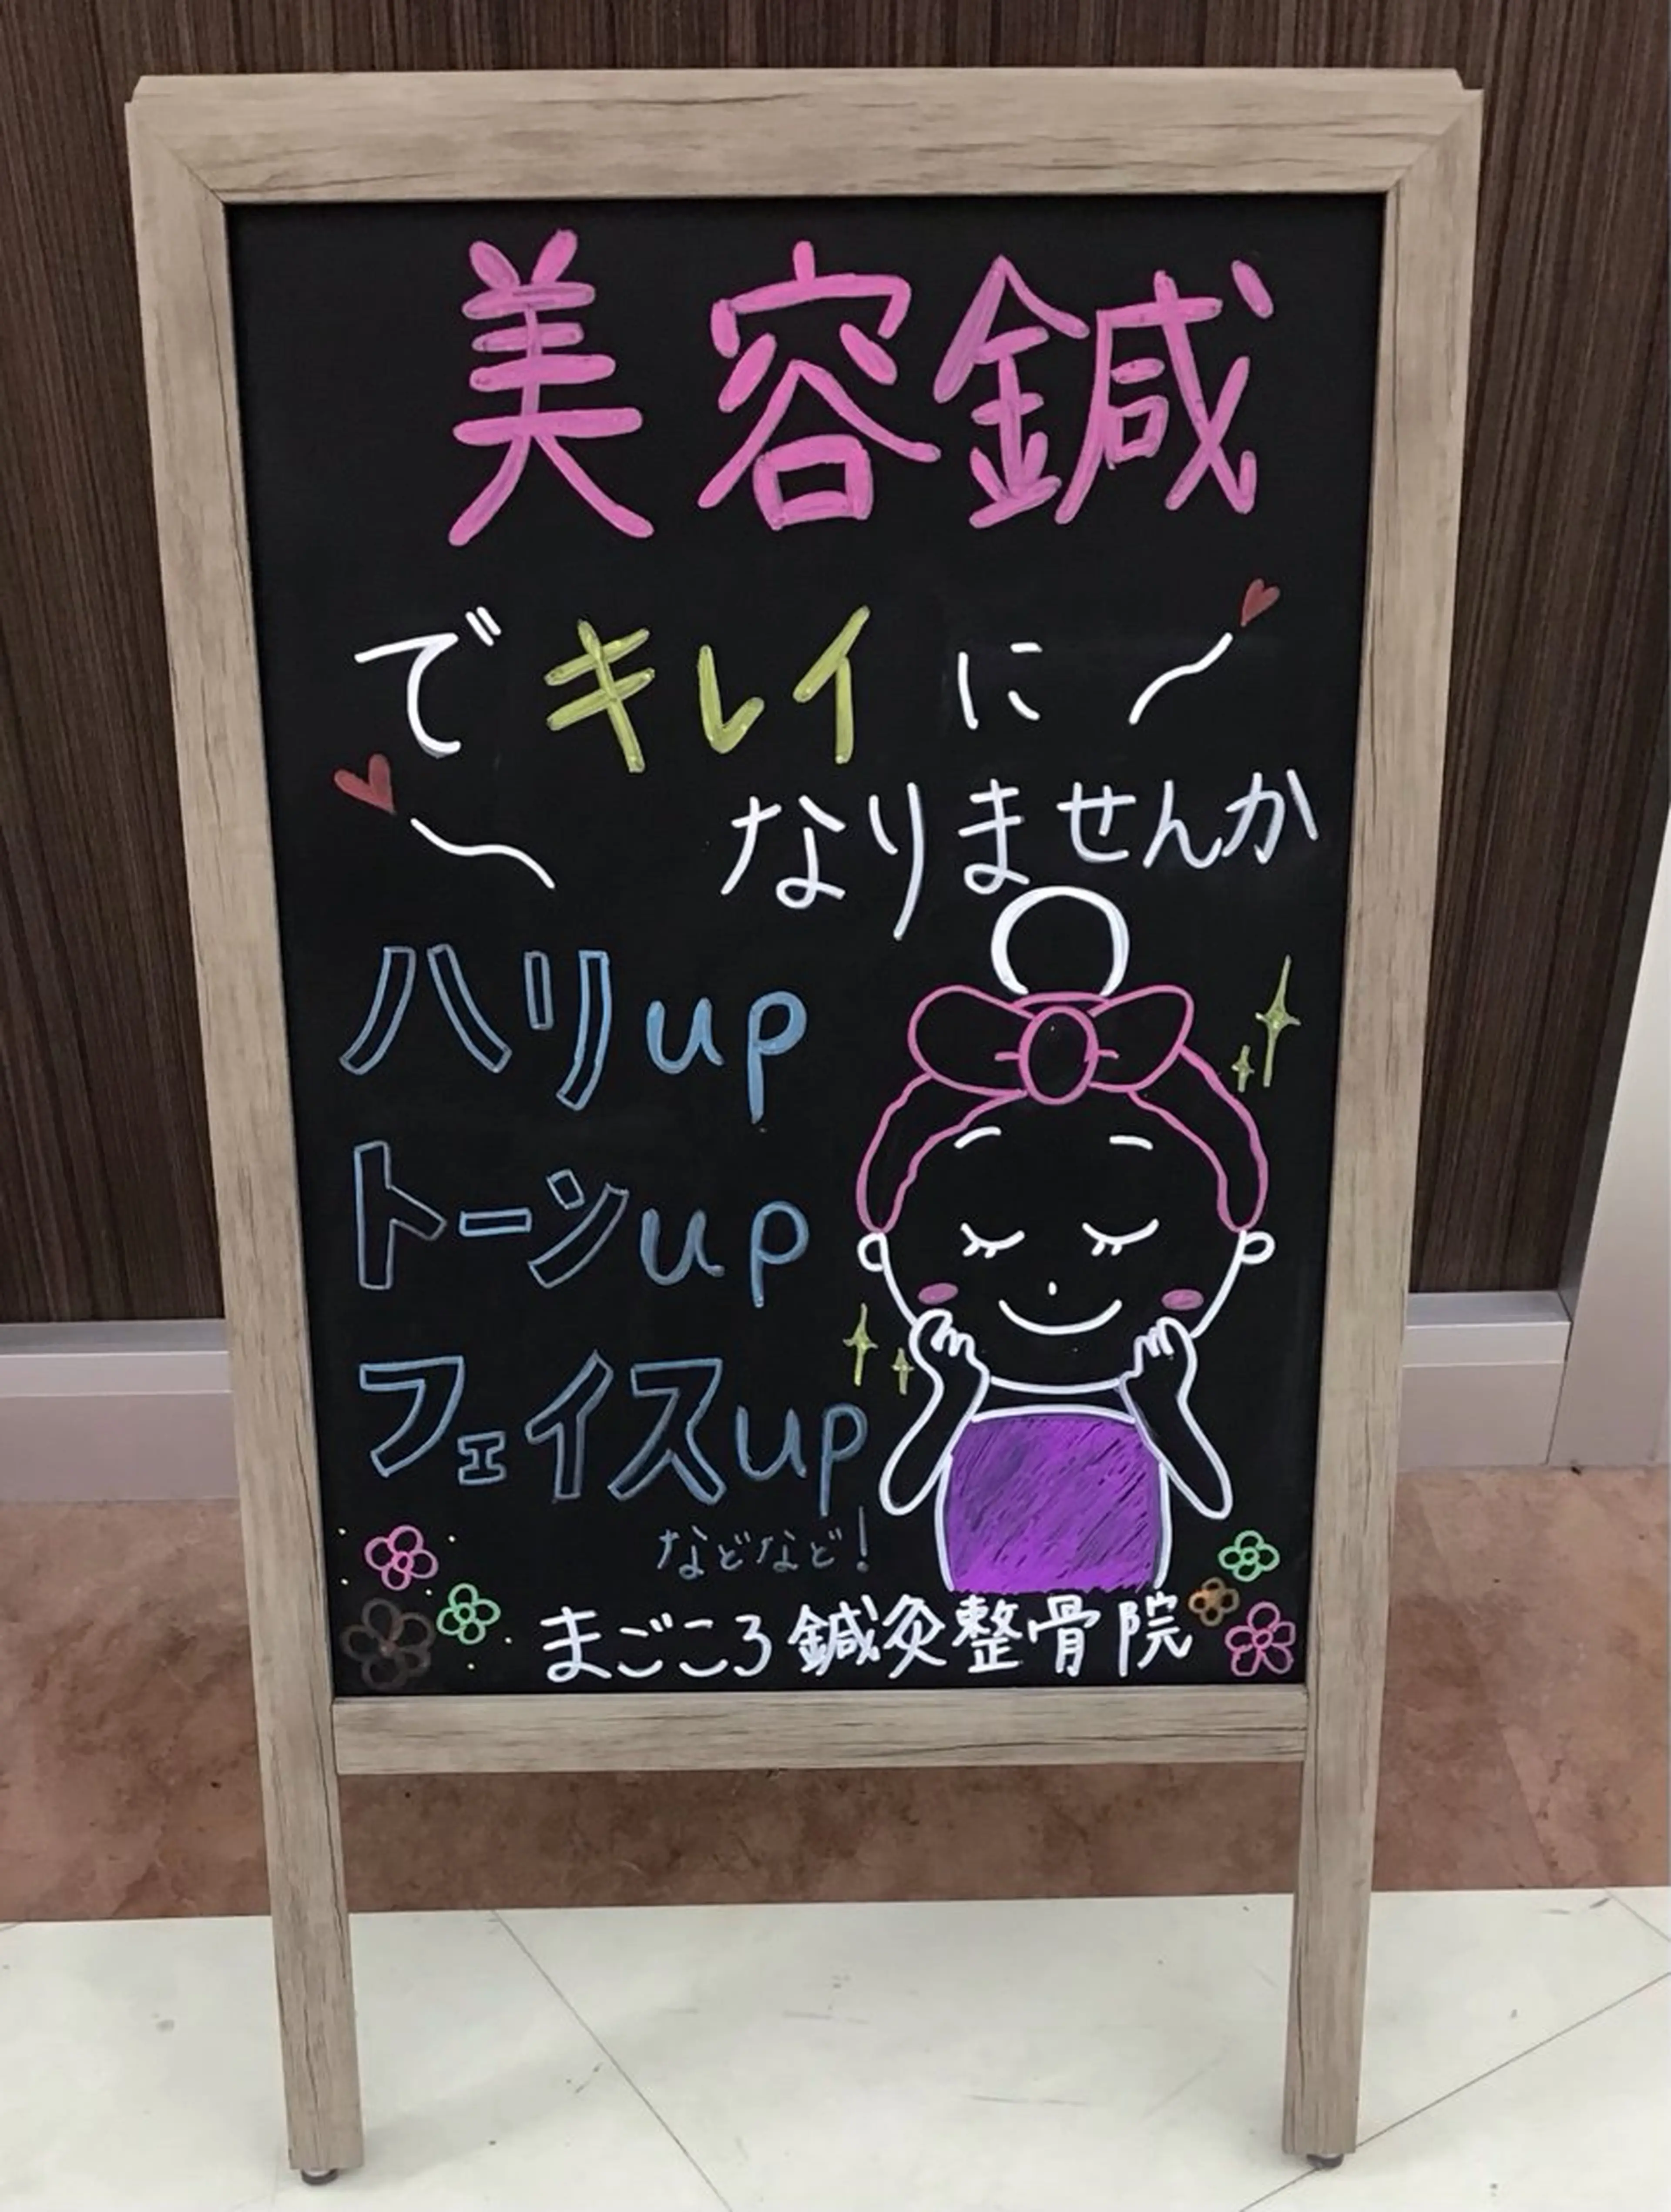 美容鍼
でキレイに
なりませんか
ハリup
トーンup
フェイスup
などなど!
まごころ鍼灸整骨院